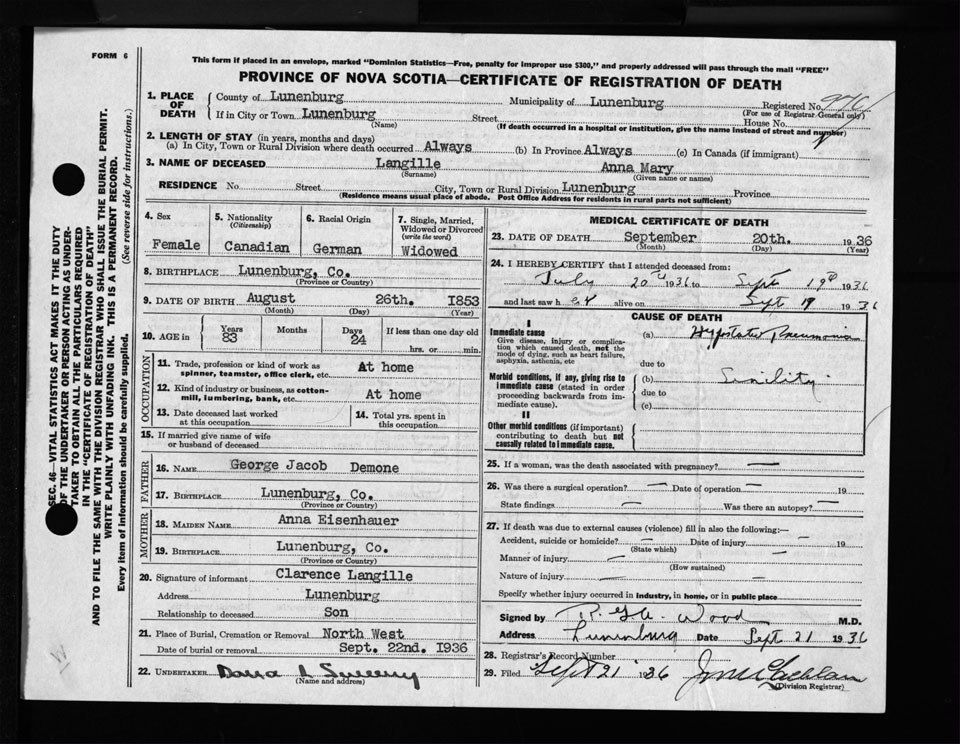 FORM 6
This form if placed in an envelope, marked "Dominion Statistics—Free, penalty for improper use $300," and properly addressed will pass through the mail "FREE"
PROVINCE OF NOVA SCOTIA—CERTIFICATE OF REGISTRATION OF DEATH
SEC. 46—VITAL STATISTICS ACT MAKES IT THE DUTY
OF THE UNDERTAKER OR PERSON ACTING AS UNDER-
TAKER TO OBTAIN ALL THE PARTICULARS REQUIRED
IN THE "CERTIFICATE OF REGISTRATION OF DEATH"
AND TO FILE THE SAME WITH THE DIVISION REGISTRAR WHO SHALL ISSUE THE BURIAL PERMIT.
WRITE PLAINLY WITH UNFADING INK. THIS IS A PERMANENT RECORD.
Every item of information should be carefully supplied. (See reverse side for instructions.)
1. PLACE OF DEATH
County of Lunenburg Municipality of Lunenburg Registered No.
(For use of Registrar General only)
If in City or Town Lunenburg Street House No.
(Name) (If death occurred in a hospital or institution, give the name instead of street and number)
2. LENGTH OF STAY (in years, months and days)
(a) In City, Town or Rural Division where death occurred Always (b) In Province Always (c) In Canada (if immigrant)
3. NAME OF DECEASED Langille Anna Mary
(Surname) (Given name or names)
RESIDENCE No. Street City, Town or Rural Division Lunenburg Province
(Residence means usual place of abode. Post Office Address for residents in rural parts not sufficient)
4. Sex Female
5. Nationality (Citizenship) Canadian
6. Racial Origin German
7. Single, Married, Widowed or Divorced (write the word) Widowed
8. BIRTHPLACE Lunenburg, Co.
(Province or Country)
9. DATE OF BIRTH August 26th. 1853
(Month) (Day) (Year)
10. AGE in Years 83 Months Days 24 If less than one day old
hrs. or min.
OCCUPATION
11. Trade, profession or kind of work as spinner, teamster, office clerk, etc. At home
12. Kind of industry or business, as cotton-mill, lumbering, bank, etc. At home
13. Date deceased last worked at this occupation
14. Total yrs. spent in this occupation
15. If married give name of wife or husband of deceased
FATHER
16. NAME George Jacob Demone
17. BIRTHPLACE Lunenburg, Co.
(Province or Country)
MOTHER
18. MAIDEN NAME Anna Eisenhauer
19. BIRTHPLACE Lunenburg, Co.
(Province or Country)
20. Signature of informant Clarence Langille
Address Lunenburg
Relationship to deceased Son
21. Place of Burial, Cremation or Removal North West
Date of burial or removal Sept. 22nd. 1936
22. UNDERTAKER
(Name and address)
MEDICAL CERTIFICATE OF DEATH
23. DATE OF DEATH September 20th. 1936
(Month) (Day) (Year)
24. I HEREBY CERTIFY that I attended deceased from:
July 20th 1936 to Sept 19th 1936
and last saw her alive on Sept 19 1936
CAUSE OF DEATH
I
Immediate cause
Give disease, injury or complication which caused death, not the mode of dying, such as heart failure, asphyxia, asthenia, etc
(a) Hypstatic Pneumonia
due to
Morbid conditions, if any, giving rise to immediate cause (stated in order proceeding backwards from immediate cause).
(b) Senility
due to
(c)
II
Other morbid conditions (if important) contributing to death but not causally related to immediate cause.
25. If a woman, was the death associated with pregnancy? —
26. Was there a surgical operation? — Date of operation — 19
State findings — Was there an autopsy? —
27. If death was due to external causes (violence) fill in also the following:—
Accident, suicide or homicide? — Date of injury — 19
(State which)
Manner of injury —
(How sustained)
Nature of injury —
Specify whether injury occurred in industry, in home, or in public place
Signed by Wood M.D.
Address Lunenburg Date Sept. 21 1936
28. Registrar's Record Number
29. Filed Sept 21 1936
(Division Registrar)